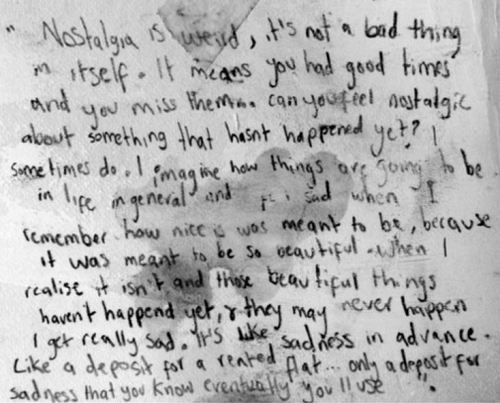 " Nostalgia is weird, it's not a bad thing
in itself. It means you had good times
and you miss them... can you feel nostalgic
about something that hasnt happened yet? I
sometimes do. I imagine how things are going to be
in life in general and sad when I
remember how nice was meant to be, because
it was meant to be so beautiful. When I
realise it isn't and those beautiful things
haven't happend yet, & they may never happen
I get really sad. It's like sadness in advance.
Like a deposit for a rented flat... only a deposit for
sadness that you know eventually you'll use ".